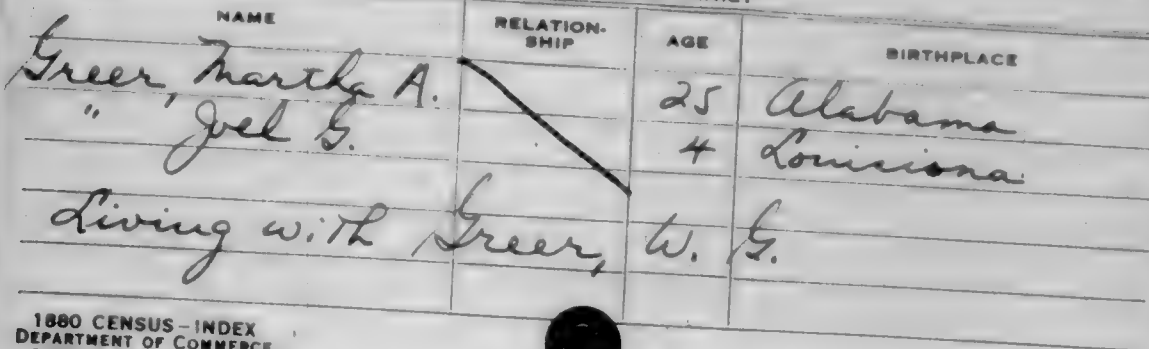 NAME RELATION-SHIP AGE BIRTHPLACE
Greer, Martha A. 25 Alabama
" Joel G. 4 Louisiana
Living with Greer, W. G.
1880 CENSUS-INDEX
DEPARTMENT OF COMMERCE